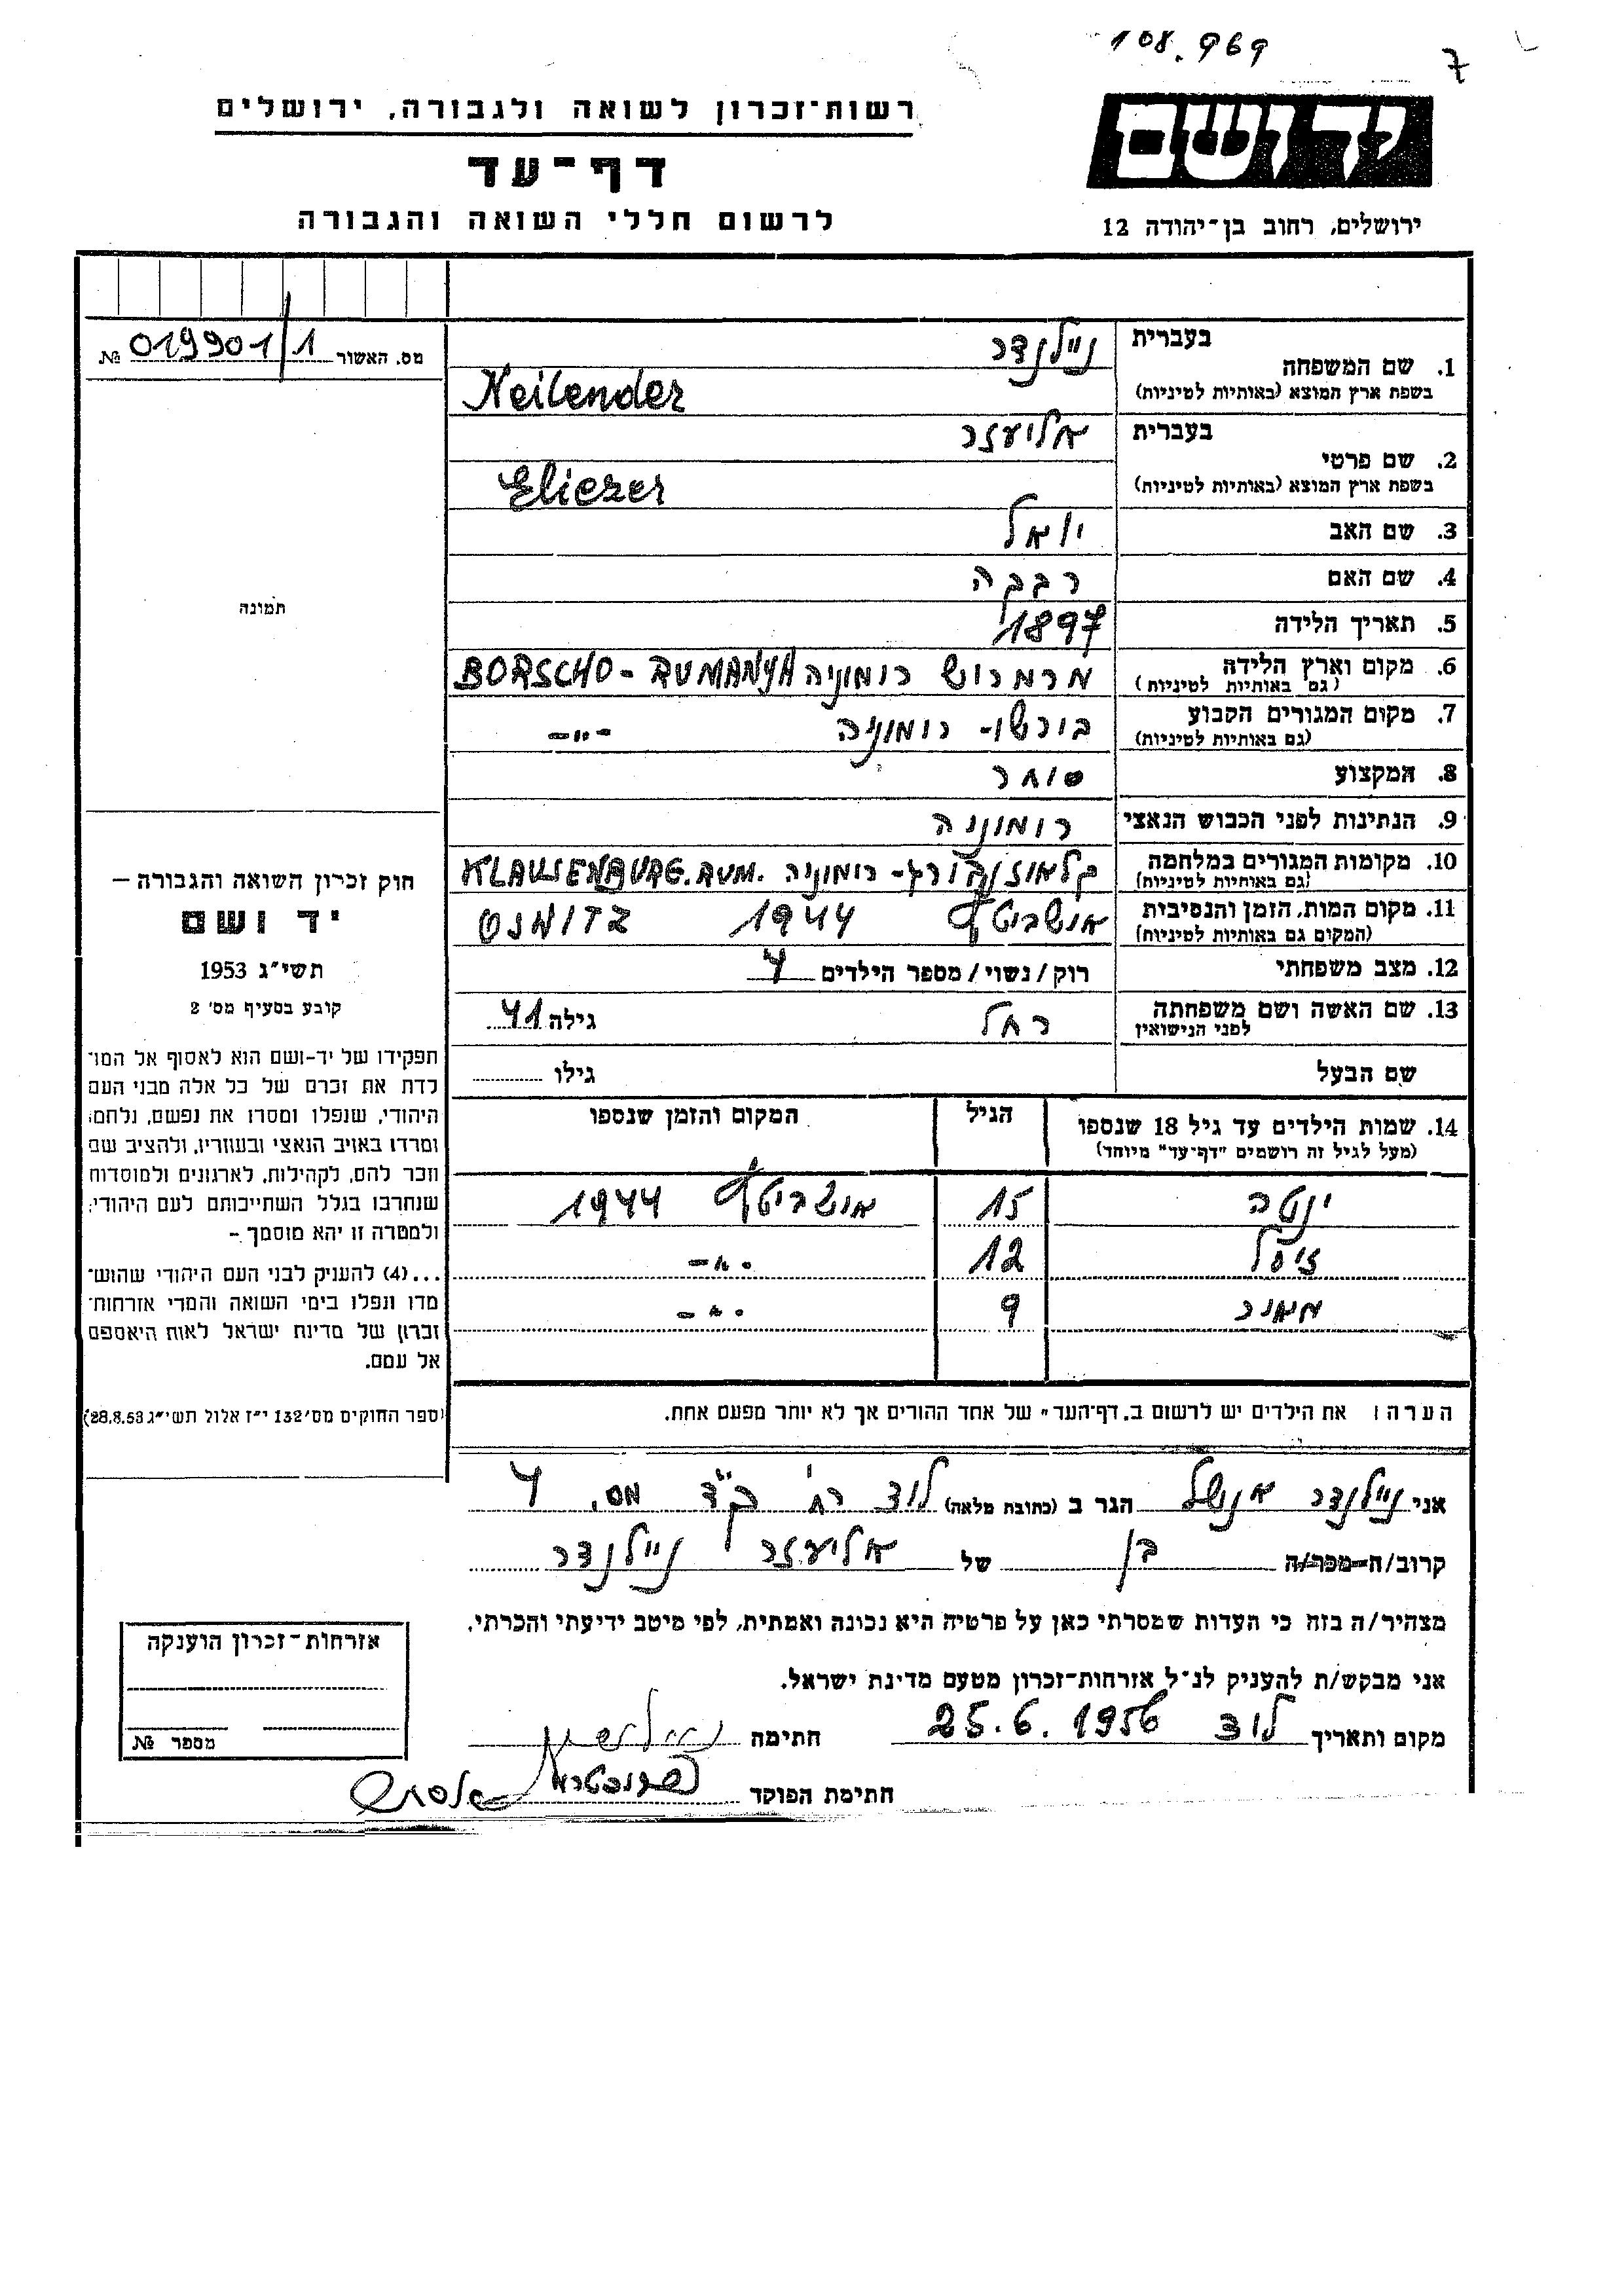 108.969
7
יד ושם
ירושלים, רחוב בן־יהודה 12
רשות־זכרון לשואה ולגבורה, ירושלים
דף־עד
לרשום חללי השואה והגבורה
מס. האשור 019901/1 №
בעברית ניילנדר
1. שם המשפחה
בשפת ארץ המוצא (באותיות לטיניות) Neilender
בעברית אליעזר
2. שם פרטי
בשפת ארץ המוצא (באותיות לטיניות) Eliezer
3. שם האב יואל
4. שם האם רבבה
5. תאריך הלידה 1897
6. מקום וארץ הלידה מרמרוש רומוניה BORSCHO - RUMANYA
(גם באותיות לטיניות)
7. מקום המגורים הקבוע בורשו - רומוניה -"-
(גם באותיות לטיניות)
8. המקצוע סוחר
9. הנתינות לפני הכבוש הנאצי רומוניה
10. מקומות המגורים במלחמה קלאוזנבורג - רומוניה KLAUSENBURG. RUM.
(גם באותיות לטיניות)
11. מקום המות, הזמן והנסיבות אושביטץ 1944
(המקום גם באותיות לטיניות)
12. מצב משפחתי רוק/נשוי/מספר הילדים 4
13. שם האשה ושם משפחתה רחל גילה 41
לפני הנישואין
שם הבעל גילו
14. שמות הילדים עד גיל 18 שנספו הגיל המקום והזמן שנספו
(מעל לגיל זה רושמים "דף־עד" מיוחד)
ינטה 15 אושביטץ 1944
זיסל 12 -"-
מאיר 9 -"-
הערה: את הילדים יש לרשום ב„דף־העד" של אחד ההורים אך לא יותר מפעם אחת.
אני ניילנדר אנשל הגר ב (כתובת מלאה) לוד רח' מס. 4
קרוב/ה מכר/ה בן של אליעזר ניילנדר
מצהיר/ה בזה כי העדות שמסרתי כאן על פרטיה היא נכונה ואמתית, לפי מיטב ידיעתי והכרתי.
אני מבקש/ת להעניק לנ"ל אזרחות־זכרון מטעם מדינת ישראל.
מקום ותאריך לוד 25.6.1956 חתימה
חתימת הפוקד
תמונה
חוק זכרון השואה והגבורה —
יד ושם
תשי"ג 1953
קובע בסעיף מס' 2
תפקידו של יד-ושם הוא לאסוף אל המו־
לדת את זכרם של כל אלה מבני העם
היהודי, שנפלו ומסרו את נפשם, נלחמו
ומרדו באויב הנאצי ובעוזריו, ולהציב שם
וזכר להם, לקהילות, לארגונים ולמוסדות
שנחרבו בגלל השתייכותם לעם היהודי;
ולמטרה זו יהא מוסמך -
...(4) להעניק לבני העם היהודי שהוש־
מדו ונפלו בימי השואה והמרי אזרחות־
זכרון של מדינת ישראל לאות היאספם
אל עמם.
(ספר החוקים מס' 132 י"ז אלול תשי"ג 28.8.53)
אזרחות־זכרון הוענקה
מספר №